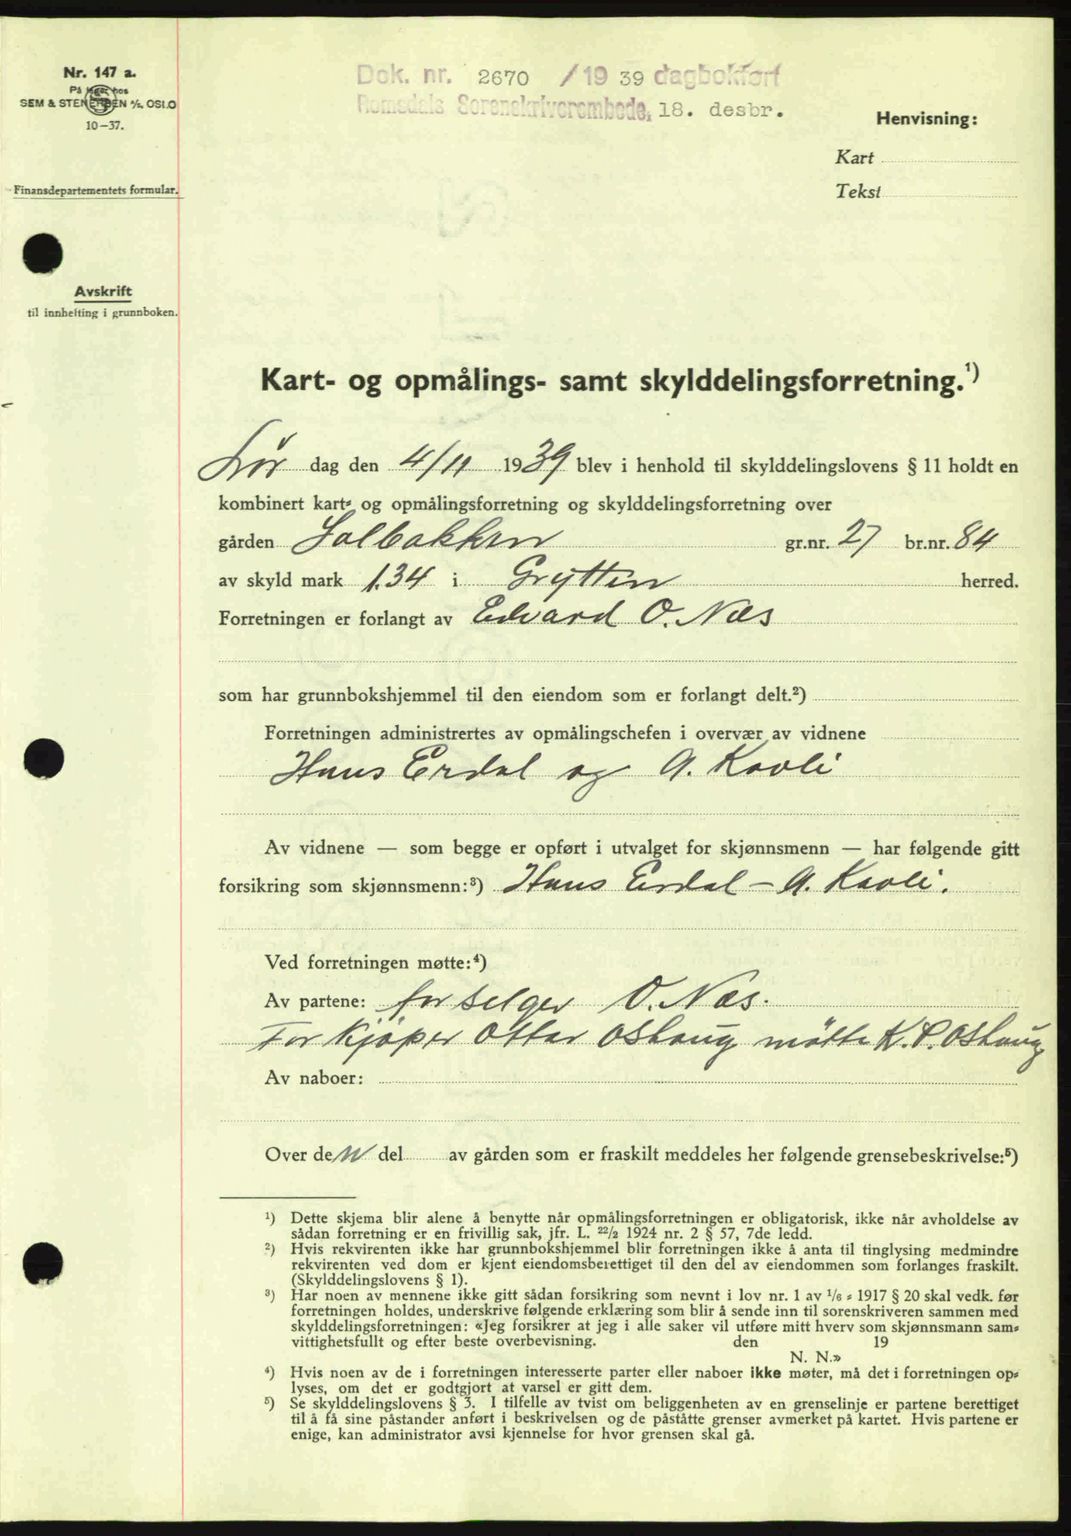 Nr. 147 a.
På lager hos
SEM & STENERSEN A/S, OSLO
10-37.
Finansdepartementets formular.
Avskrift
til innhefting i grunnboken.
Dok. nr. 2670 /19 39 dagbokført
Romsdals Sorenskriverembede, 18. desbr.
Henvisning:
Kart
Tekst
Kart- og opmålings- samt skylddelingsforretning.¹)
Lør dag den 4/11 1939 blev i henhold til skylddelingslovens § 11 holdt en
kombinert kart- og opmålingsforretning og skylddelingsforretning over
gården Solbakken gr.nr. 27 br.nr. 84
av skyld mark 1.34 i Grytten herred.
Forretningen er forlangt av Edvard O. Næs
som har grunnbokshjemmel til den eiendom som er forlangt delt.²)
Forretningen administrertes av opmålingschefen i overvær av vidnene
Hans Erdal og A. Kavli
Av vidnene — som begge er opført i utvalget for skjønnsmenn — har følgende gitt
forsikring som skjønnsmenn:³) Hans Erdal - A. Kavli.
Ved forretningen møtte:⁴)
Av partene: for selger O. Næs.
For kjøper Ottar Oshaug møtte K. P. Oshaug
Av naboer:
Over den del av gården som er fraskilt meddeles her følgende grensebeskrivelse:⁵)
¹) Dette skjema blir alene å benytte når opmålingsforretningen er obligatorisk, ikke når avholdelse av
sådan forretning er en frivillig sak, jfr. L. 22/2 1924 nr. 2 § 57, 7de ledd.
²) Hvis rekvirenten ikke har grunnbokshjemmel blir forretningen ikke å anta til tinglysing medmindre
rekvirenten ved dom er kjent eiendomsberettiget til den del av eiendommen som forlanges fraskilt.
(Skylddelingslovens § 1).
³) Har noen av mennene ikke gitt sådan forsikring som nevnt i lov nr. 1 av 1/6 - 1917 § 20 skal vedk. før
forretningen holdes, underskrive følgende erklæring som blir å sende inn til sorenskriveren sammen med
skylddelingsforretningen: «Jeg forsikrer at jeg i alle saker vil utføre mitt hverv som skjønnsmann sam-
vittighetsfullt og efter beste overbevisning. den 19
N. N.»
⁴) Hvis noen av de i forretningen interesserte parter eller naboer ikke møter, må det i forretningen op-
lyses, om det er godtgjort at varsel er gitt dem.
⁵) Se skylddelingslovens § 3. I tilfelle av tvist om beliggenheten av en grenselinje er partene berettiget
til å få sine påstander anført i beskrivelsen og de påståtte grenser avmerket på kartet. Hvis partene er
enige, kan administrator avsi kjennelse for hvor grensen skal gå.